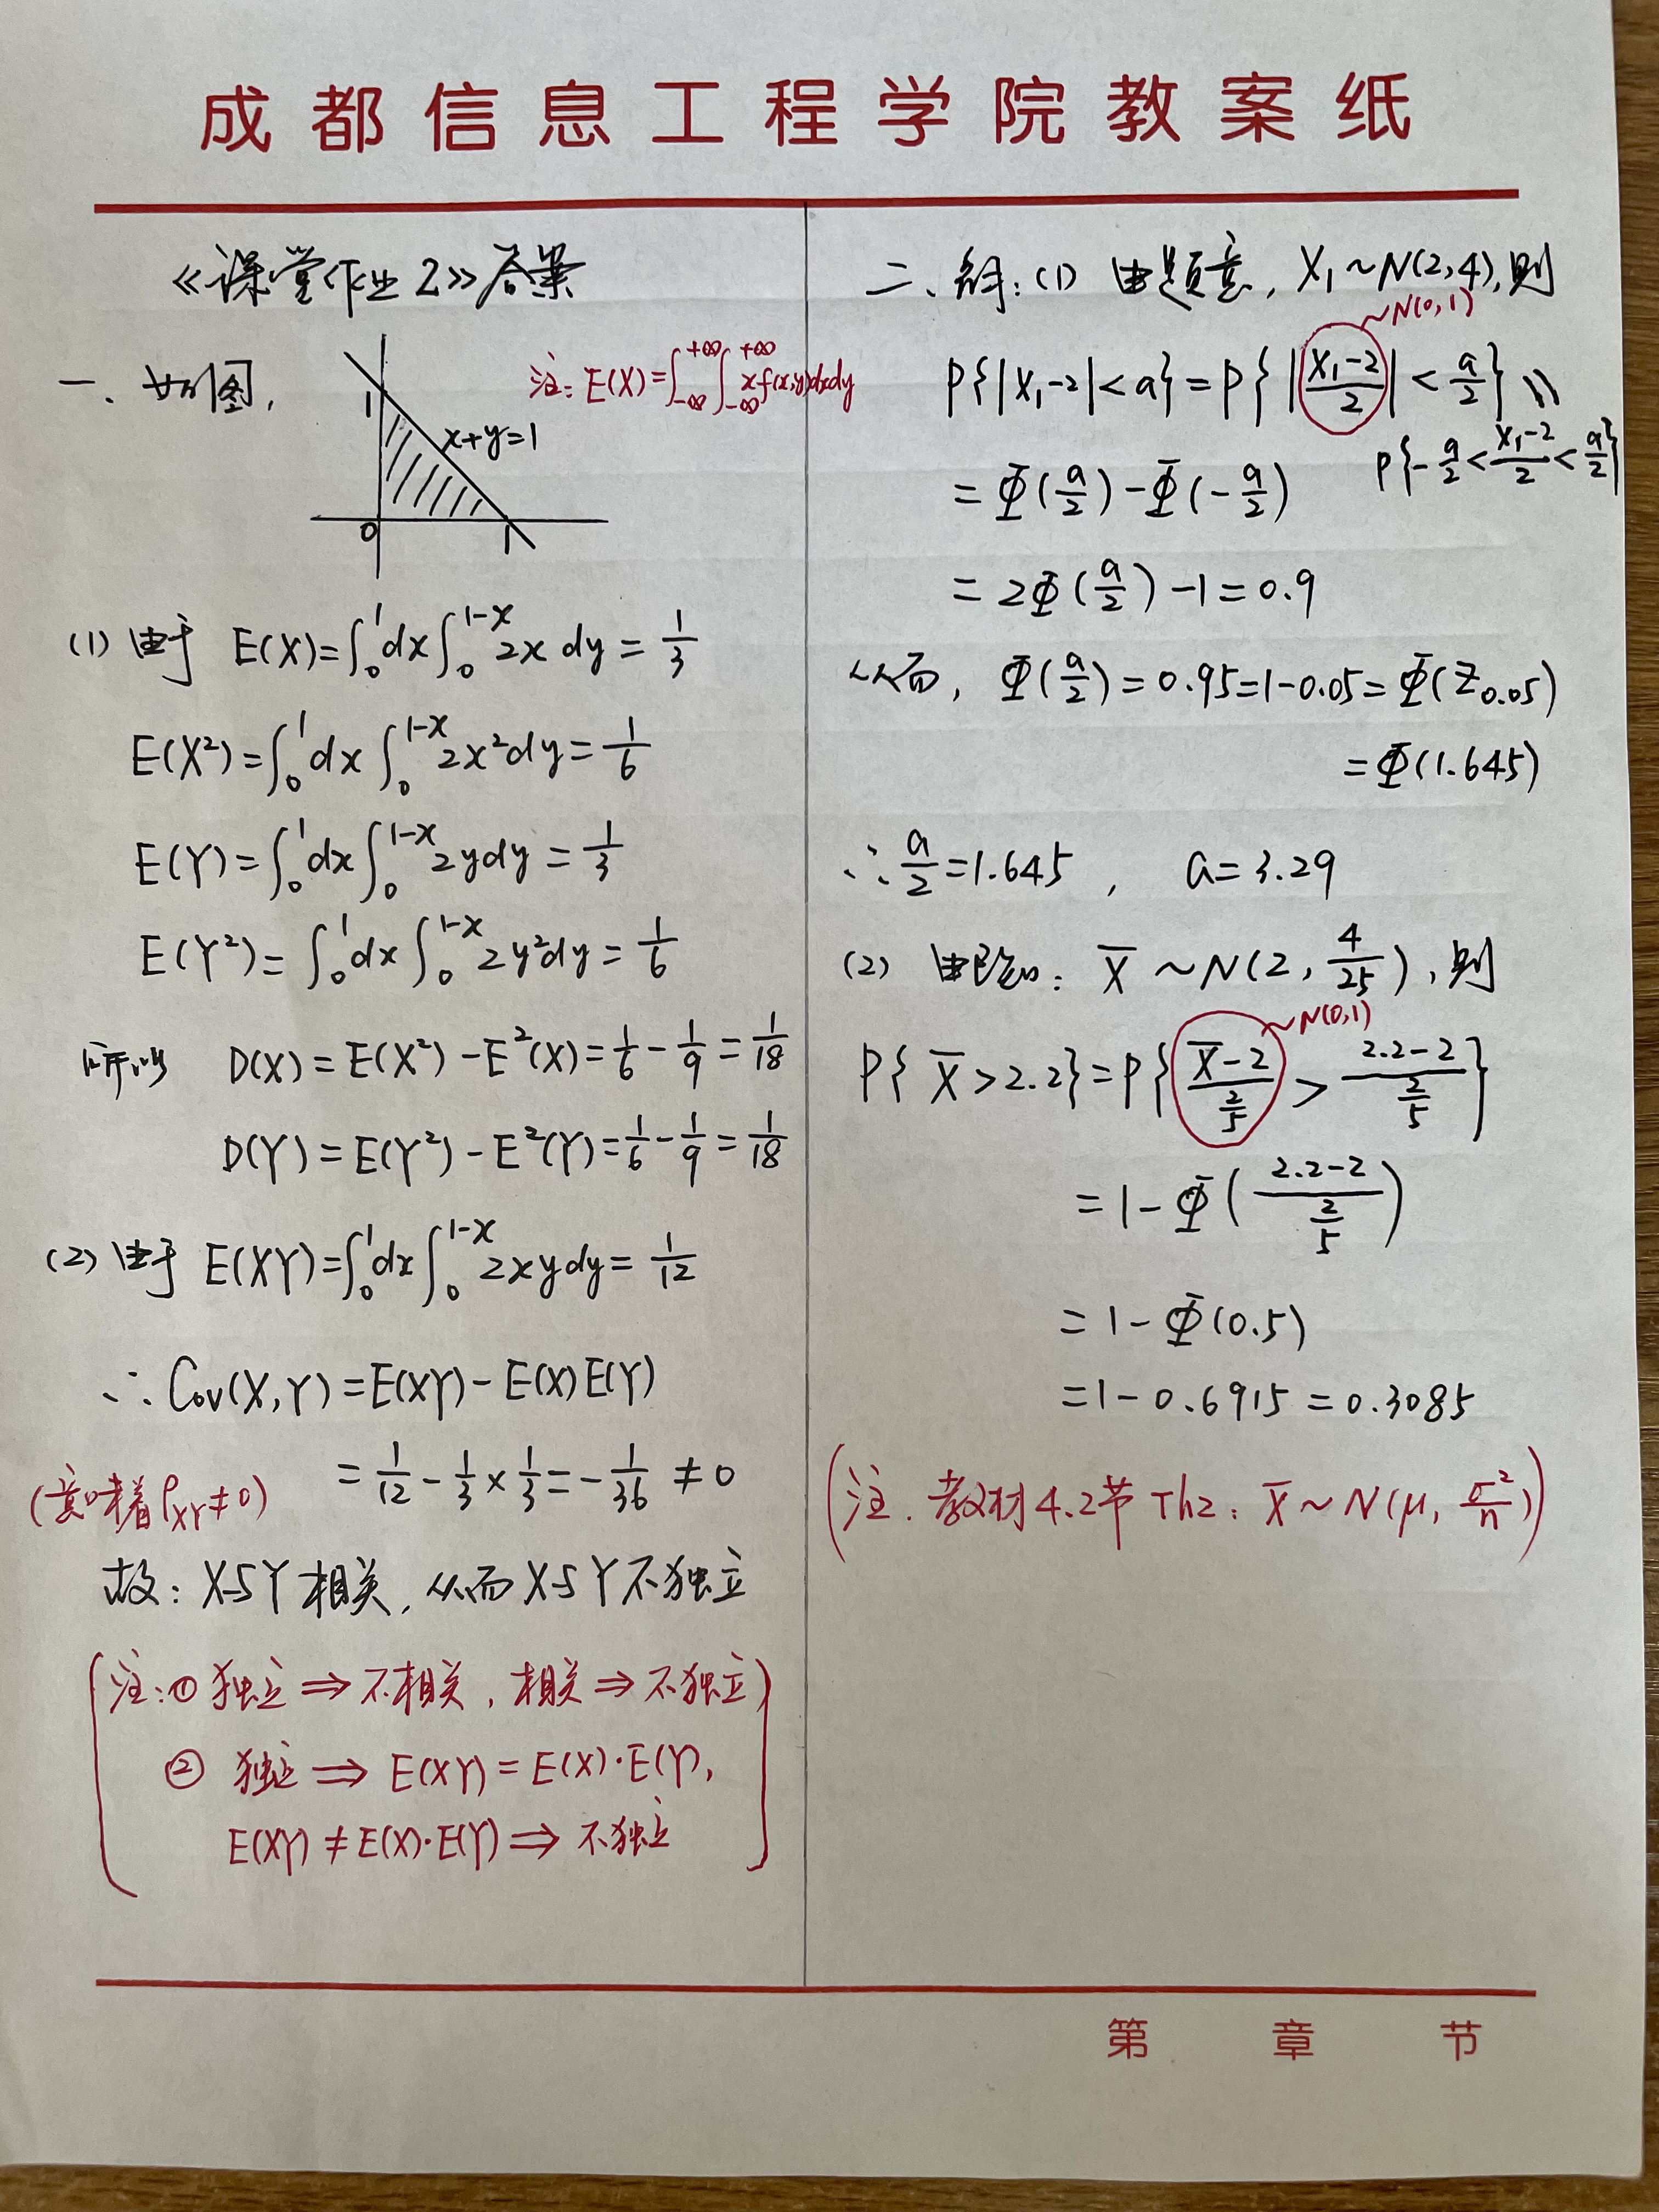 成都信息工程学院教案纸
《课堂作业2》答案
一、如图,
注: E(X)=∫_{-∞}^{+∞}∫_{-∞}^{+∞} xf(x,y)dxdy
1
x+y=1
0
1
(1) 由于 E(X)=∫_0^1 dx∫_0^{1-x} 2x dy = 1/3
E(X²)=∫_0^1 dx∫_0^{1-x} 2x²dy = 1/6
E(Y)=∫_0^1 dx∫_0^{1-x} 2ydy = 1/3
E(Y²)=∫_0^1 dx∫_0^{1-x} 2y²dy = 1/6
所以 D(X)=E(X²)-E²(X)=1/6-1/9=1/18
D(Y)=E(Y²)-E²(Y)=1/6-1/9=1/18
(2) 由于 E(XY)=∫_0^1 dx∫_0^{1-x} 2xydy = 1/12
∴ Cov(X,Y)=E(XY)-E(X)E(Y)
=1/12-1/3×1/3=-1/36≠0
(意味着ρ_{XY}≠0)
故: X与Y相关, 从而X与Y不独立
(注:① 独立⇒不相关, 相关⇒不独立)
② 独立⇒E(XY)=E(X)·E(Y),
E(XY)≠E(X)·E(Y)⇒不独立
二、解:(1) 由题意, X₁~N(2,4),则
~N(0,1)
P{|X₁-2|<a}=P{|(X₁-2)/2|<a/2}
P{-a/2<(X₁-2)/2<a/2}
=Φ(a/2)-Φ(-a/2)
=2Φ(a/2)-1=0.9
从而, Φ(a/2)=0.95=1-0.05=Φ(Z_{0.05})
=Φ(1.645)
∴ a/2=1.645, a=3.29
(2) 由已知: X̄~N(2, 4/25), 则
~N(0,1)
P{X̄>2.2}=P{(X̄-2)/(2/5)>(2.2-2)/(2/5)}
=1-Φ((2.2-2)/(2/5))
=1-Φ(0.5)
=1-0.6915=0.3085
(注. 教材4.2节Th2: X̄~N(μ, σ²/n))
第 章 节